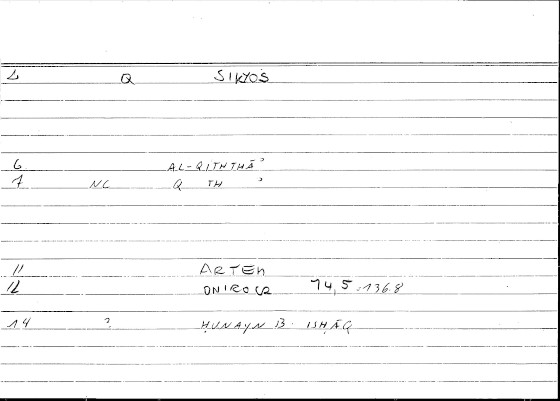 Q SIKYOS
6 AL-QITHTHĀʾ
7 NC Q TH ʾ
11 ARTEM
12 ONIROCR 74,5:136.8
14 ? ḤUNAYN B. ISḤĀQ